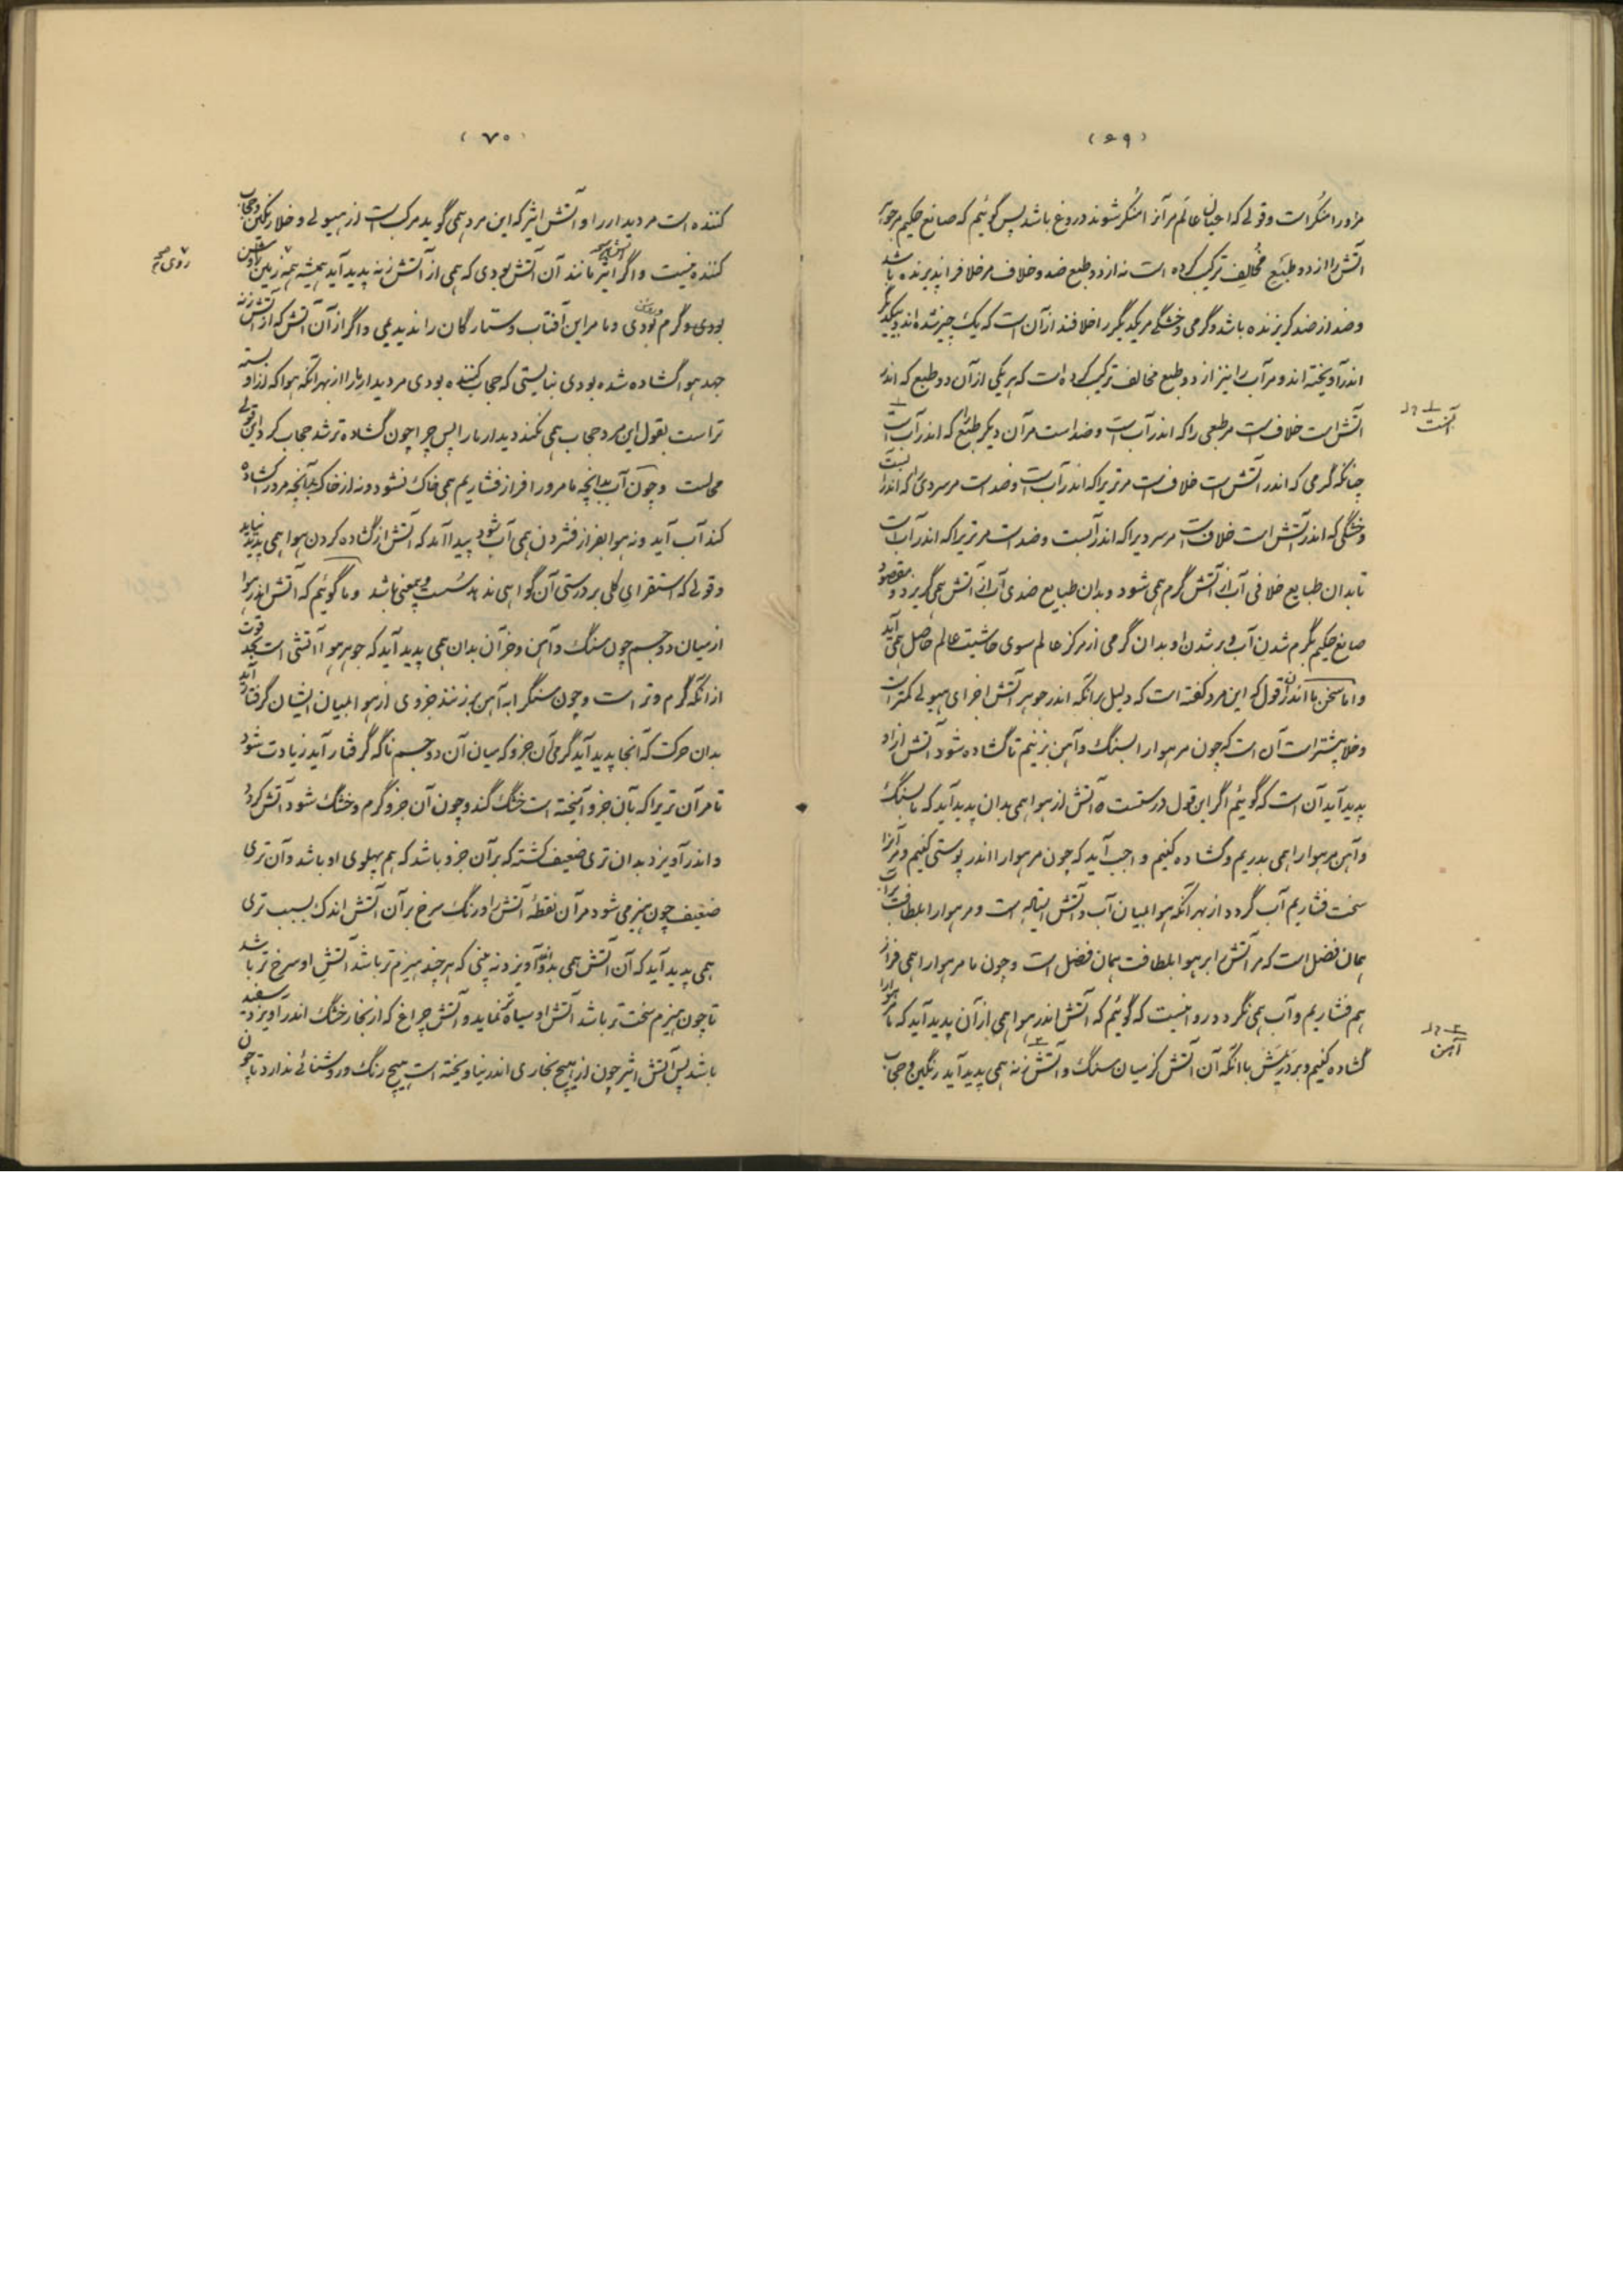 (۶۹)
مرورا منکر است و قولی که اعیان عالم مر آنرا منکر شوند دروغ باشد پس گوئیم که صانع حکیم مر جوهر
آتش را از دو طبع مخالف ترکیب کرده است نه از دو طبع ضد و خلاف مر خلاف را پذیرنده باشد
و ضد از ضد گریزنده باشد و گرمی و خشکی مر یکدیگر را خلافند از آن است که یک چیز شده‌اند و بیکدیگر
اندر آویخته‌اند و مر آب را نیز از دو طبع مخالف ترکیب کرده است که هر یکی از آن دو طبع که اندر
آتش است خلاف است مر طبعی را که اندر آب است و ضد است مر آن دیگر طبع را که اندر آب است
چنانکه گرمی که اندر آتش است خلاف است مر تری را که اندر آب است و ضد است مر سردی را که اندر آبست
و خشکی که اندر آتش است خلاف است مر سردی را که اندر آبست و ضد است مر تری را که اندر آب است
تا بدان طبایع خلافی آب از آتش گرم همی شود و بدان طبایع ضدی آب از آتش همی گریزد و مقصود
صانع حکیم بگرم شدن آب و بر شدن او بدان گرمی از مرکز عالم سوی حاشیت عالم حاصل همی آید
و اما سخن ما اندر آن قول که این مرد گفته است که دلیل بر آنکه اندر جوهر آتش اجزای هیولی کمتر است
و خلا بیشتر است آن است که چون مر هوا را بسنگ و آهن بزنیم تا گشاده شود آتش ازو
پدید آید آن است که گوئیم اگر این قول درستست که آتش از هوا همی بدان پدید آید که ما بسنگ
و آهن مر هوا را همی بدریم و گشاده کنیم واجب آید که چون مر هوا را اندر پوستی کنیم و مر آنرا
سخت فشاریم آب گردد از بهر آنکه هوا بمیان آب و آتش ایستاده است و مر هوا را بلطافت بر آب
همان فضل است که مر آتش را بر هوا بلطافت همان فضل است و چون ما مر هوا را همی فراز
هم فشاریم و آب همی نگردد روا نیست که گوئیم که آتش اندر هوا همی از آن پدید آید که ما مر هوا را
گشاده کنیم و بر دریمش با آنکه آن آتش کز میان سنگ و آتش زنه همی پدید آید رنگین و حجاب
۱
آتست
۲
آهن
(۷۰)
کننده است مر دیدار را و آتش اثیر که این مرد همی گوید مرکب است از هیولی و خلا رنگین و حجاب
کننده نیست و اگر اثیر مانند آن آتش بودی که همی از آتش زنه پدید آید همیشه همه زمین روشن
بودی و گرم بودی و ما مر این آفتاب و ستارگان را ندیدیمی و اگر از آن آتش که از آتش زنه
جهد هوا گشاده شده بودی نبایستی که حجاب کننده بودی مر دیدار ما را از بهر آنکه هوا که ازو بسته
تر است بقول این مرد حجاب همی نکند دیدار ما را پس چرا چون گشاده تر شد حجاب کرد و این قولی
محالست و چون آب بدانچه ما مرورا فراز فشاریم همی خاک نشود و نه از خاک بدانچه مرورا گشاده
کند آب آید و نه هوا بفراز فشردن همی آب شود پیدا آمد که آتش از گشاده کردن هوا همی پدید نیاید
و قولی که استقرای کلی بر درستی آن گواهی ندهد سست و بی‌معنی باشد و ما گوئیم که آتش اندر هوا
از میان دو جسم چون سنگ و آهن و جز آن بدان همی پدید آید که جوهر هوا آتشی است بحد قوت
از آنکه گرم و تر است و چون سنگ را به آهن بر زنند جزوی از هوا بمیان ایشان گرفتار آید
بدان حرکت که آنجا پدید آید گرمی آن جزو که میان آن دو جسم ناگه گرفتار آید زیادت شود
تا مر آن تری را که بآن جزو آمیخته است خشک کند و چون آن جزو گرم و خشک شود آتش گردد
و اندر آویزد بدان تری ضعیف گشته که بر آن جزو باشد که هم پهلوی او باشد و آن تری
ضعیف چون هیزمی شود مر آن نقطه آتش را و رنگ سرخ بر آن آتش اندک بسبب تری
همی پدید آید که آن آتش همی بدو آویزد نه بینی که هر چند هیزم تر باشد آتش او سرخ تر باشد
تا چون هیزم سخت تر باشد آتش او سیاه نماید و آتش چراغ که از بخار خشک اندر آویزد سفید
باشد پس آتش اثیر چون از هیچ بخاری اندر نیاویخته است هیچ رنگ و روشنائی ندارد تا چون